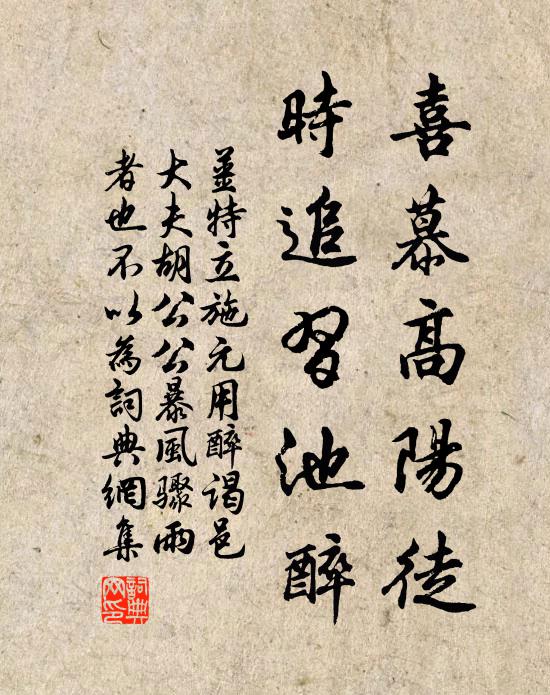 喜慕高陽徒
時追習池醉
姜特立施元用醉謁邑
大夫胡公公暴風驟雨
者也不以為詞典網集
詞典網印